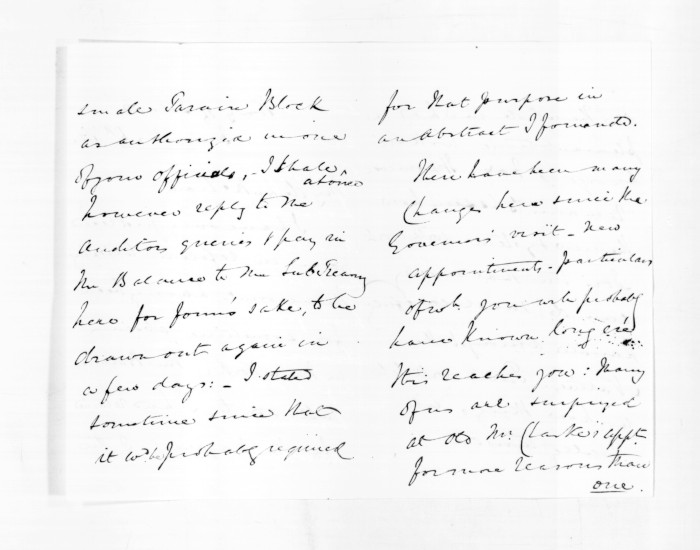 small Tarain Block
as authorized in one
of your officials, I shall
at once
however reply to the
Auditors queries & pay in
the Balance to the Sub Treasury
here for form's sake, to be
drawn out again in
a few days: - I stated
sometime since that
it wd be probably required
for that purpose in
an Abstract I forwarded.
There have been many
Changes here since the
Governors visit - new
appointments - particulars
of wh. you will probably
have known long ere
this reaches you: Many
of us are surprized
at Old Mr. Clarke's appt.
for more reasons than
one.